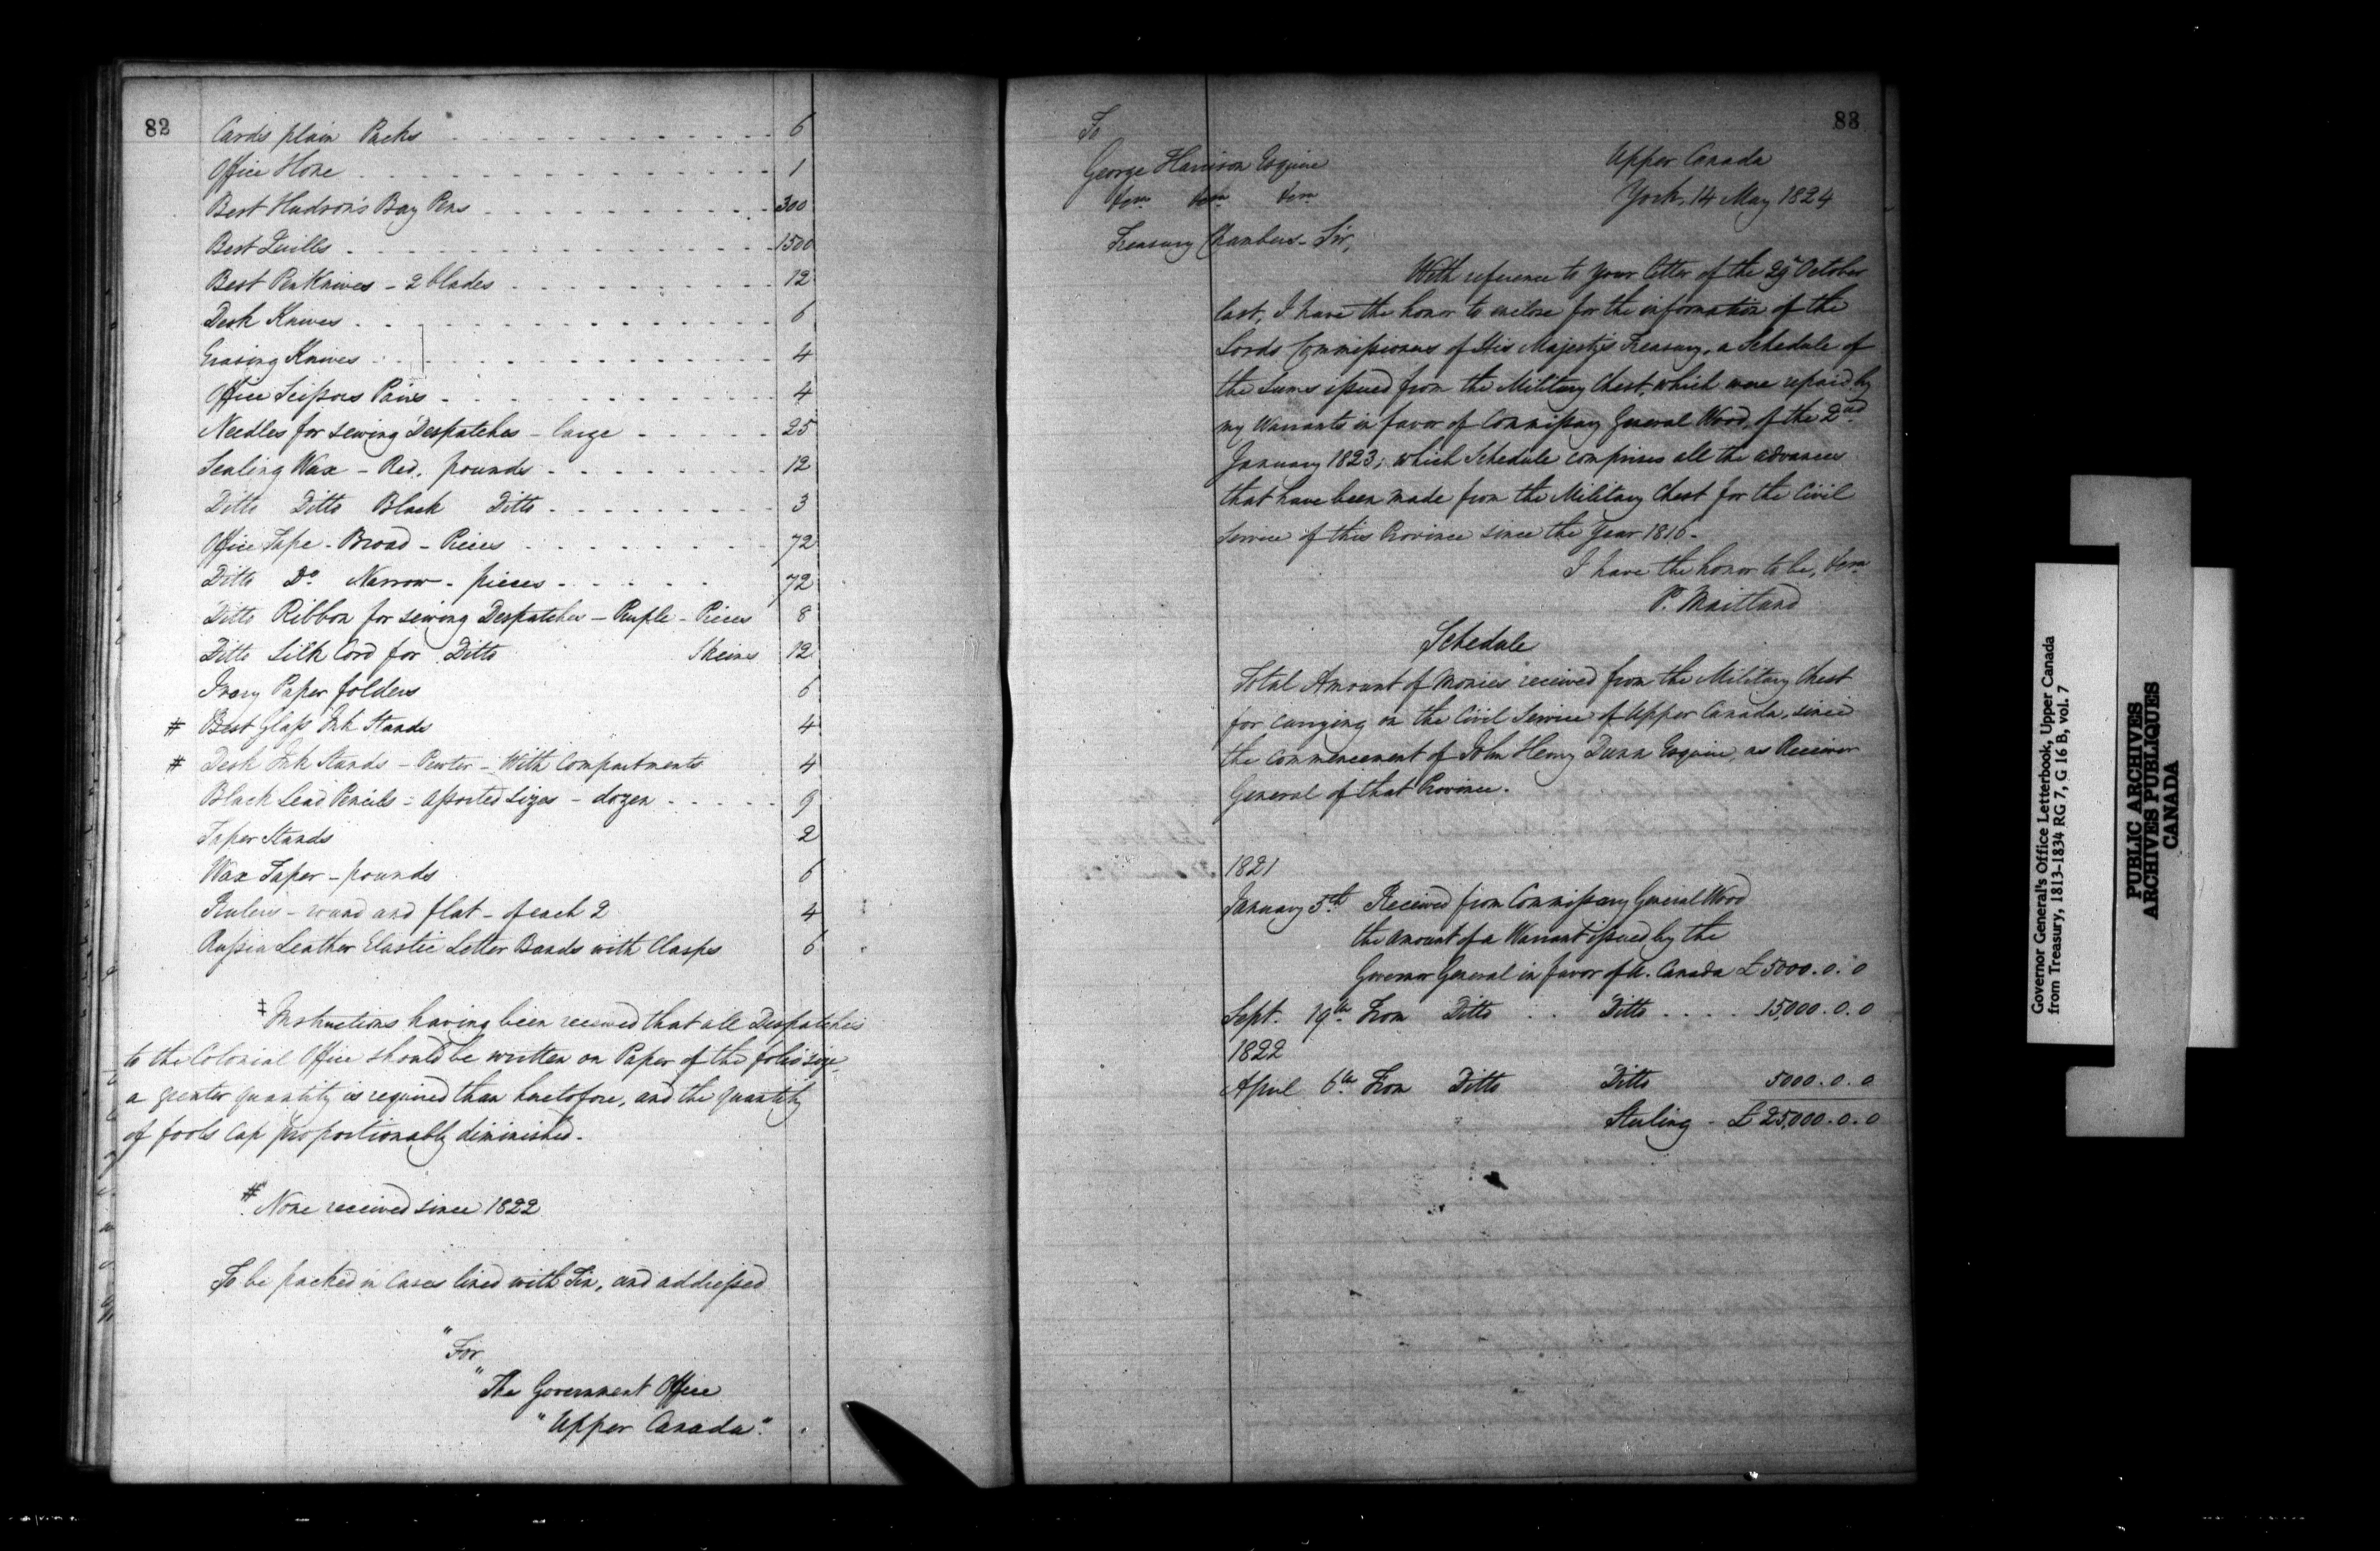 82
Cards plain Packs 6
Office Hone 1
Best Hudson's Bay Pens 300
Best Quills 1500
Best PenKnives - 2 blades 12
Desk Knives 6
Erasing Knives 4
Office Scissors Pairs 4
Needles for sewing Despatches - large 25
Sealing Wax - Red, pounds 12
Ditto Ditto Black Ditto 3
Office Tape - Broad - Pieces 72
Ditto Do Narrow - pieces 72
Ditto Ribbon for sewing Despatches - Purple - Pieces 8
Ditto Silk Cord for Ditto Skeins 12
Ivory Paper folders 6
# Best Glass Ink Stands 4
# Desk Ink Stands - Pewter - With Compartments 4
Black Lead Pencils - Assorted Sizes - dozen 9
Taper Stands 2
Wax Taper - pounds 6
Rulers - round and flat - of each 2 4
Russia Leather Elastic Letter Bands with Clasps 6
‡ Instructions having been received that all Despatches
to the Colonial Office should be written on Paper of the folio size,
a greater quantity is required than heretofore, and the quantity
of fools Cap proportionably diminished.
# None received since 1822
To be packed in Cases lined with Tin, and addressed
"For
"The Government Office
"Upper Canada".
83
To
George Harrison Esquire
Upper Canada
York, 14 May 1824
Treasury Chambers - Sir,
With reference to your letter of the 29th October
last, I have the honor to enclose for the information of the
Lords Commissioners of His Majesty's Treasury, a Schedule of
the Sums issued from the Military Chest, which were repaid by
my Warrants in favor of Commissary General Wood, of the 2nd
January 1823; which Schedule comprises all the advances
that have been made from the Military Chest for the Civil
Service of this Province since the Year 1816.
I have the honor to be,
P. Maitland
Schedule
Total Amount of Monies received from the Military Chest
for carrying on the Civil Service of Upper Canada, since
the commencement of John Henry Dunn Esquire, as Receiver
General of that Province.
1821
January 5th Received from Commissary General Wood
the amount of a Warrant issued by the
Governor General in favor of U. Canada £5000.0.0
Sept. 19th From Ditto Ditto 15,000.0.0
1822
April 6th From Ditto Ditto 5000.0.0
Sterling - £25,000.0.0
Governor General's Office Letterbook, Upper Canada
from Treasury, 1813-1834 RG 7, G 16 B, vol. 7
PUBLIC ARCHIVES
ARCHIVES PUBLIQUES
CANADA